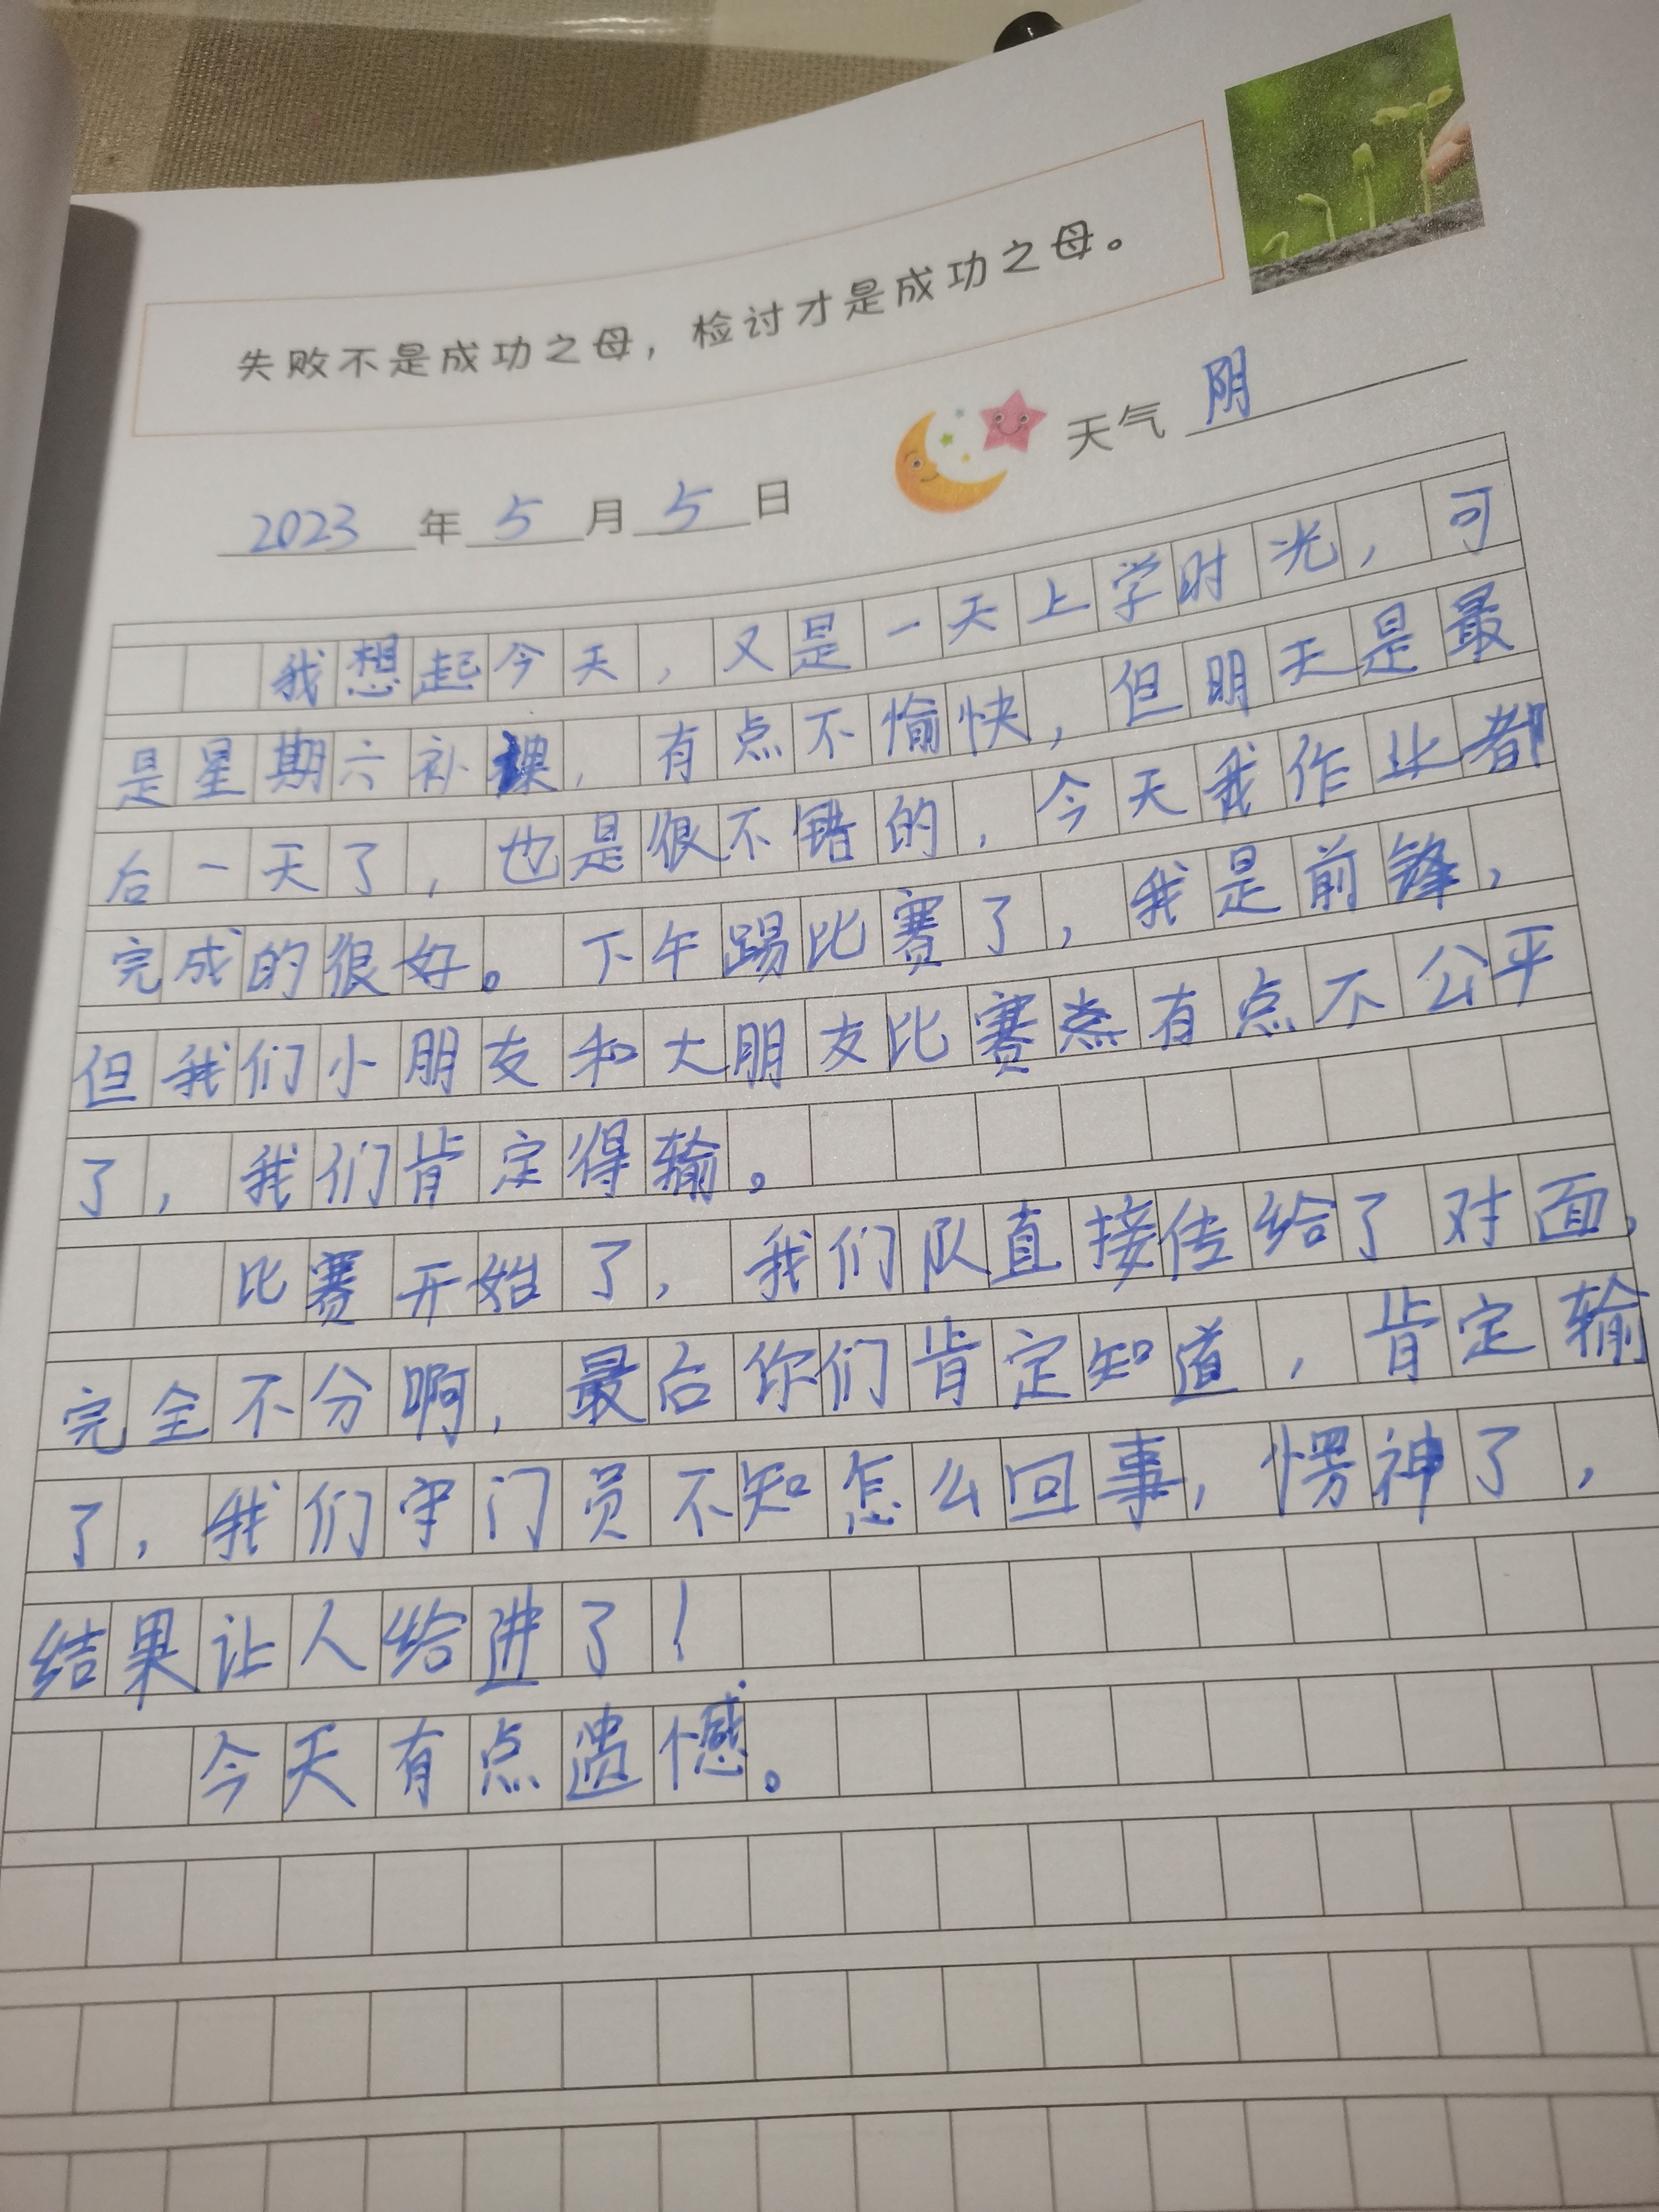 失败不是成功之母，检讨才是成功之母。
天气 阴
2023 年 5 月 5 日
我想起今天，又是一天上学时光，可
是星期六补课，有点不愉快，但明天是最
后一天了，也是很不错的，今天我作业都
完成的很好。下午踢比赛了，我是前锋，
但我们小朋友和大朋友比赛 有点不公平
了，我们肯定得输。
比赛开始了，我们队直接传给了对面，
完全不分啊，最后你们肯定知道，肯定输
了，我们守门员不知怎么回事，愣神了，
结果让人给进了！
今天有点遗憾。